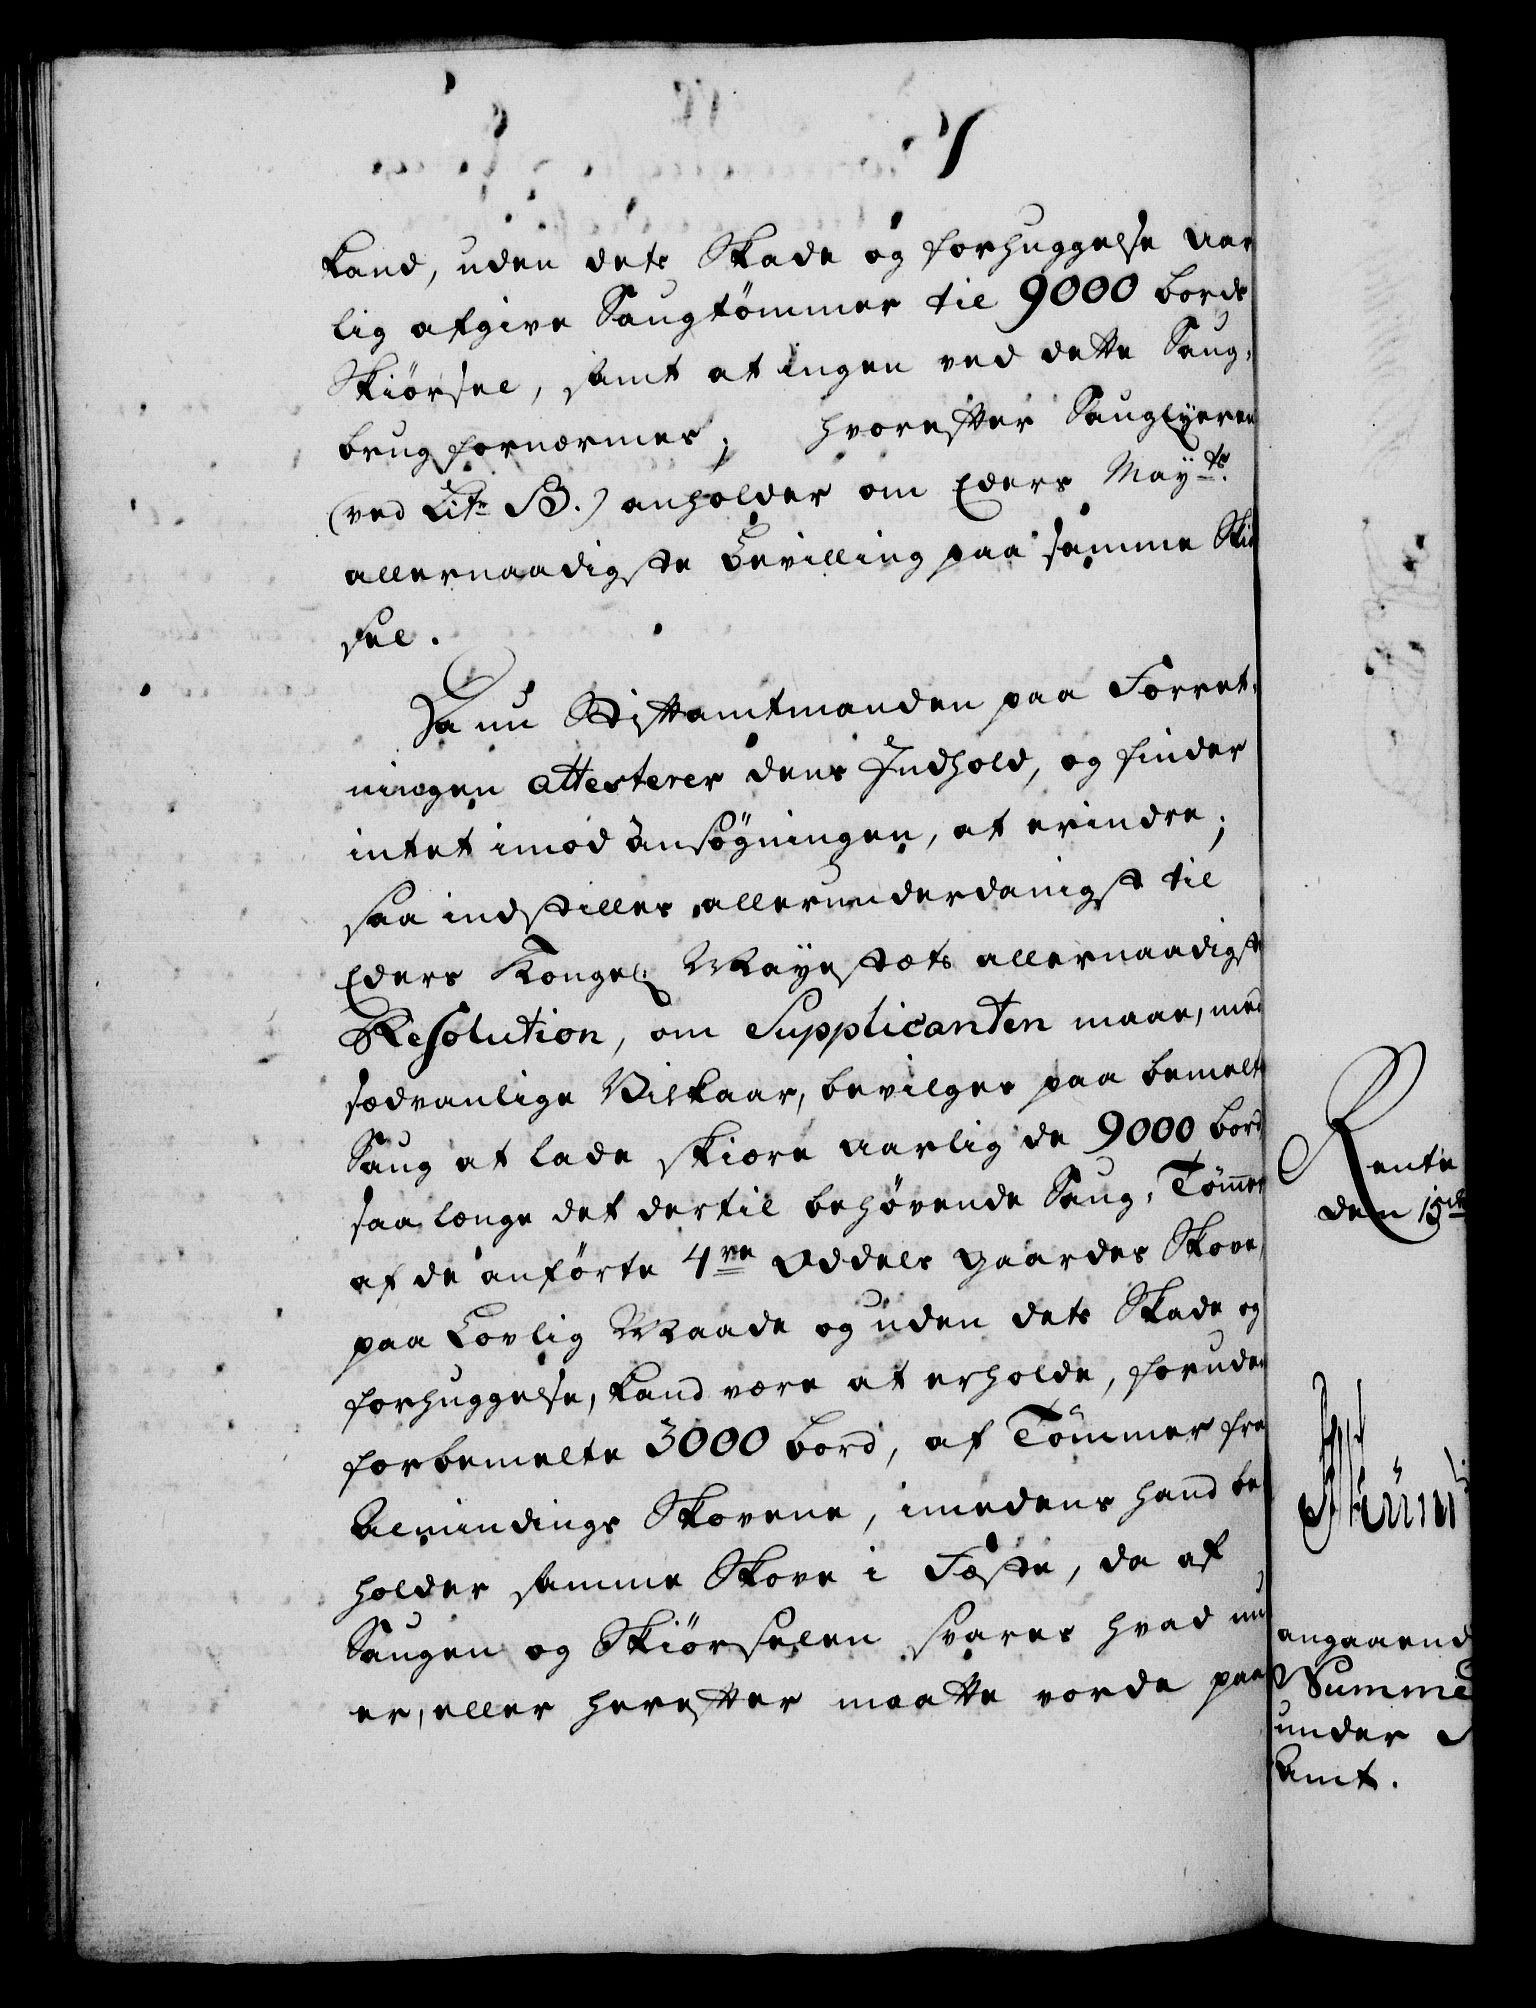 kand, uden dets Skade og forhuggelse aar
lig afgive Saugtømmer til 9000 bords
Skiørsel, samt at ingen ved dette Saug-
brug fornærmes; hvorefter Saugeyeren
(ved Litr B.) anholder om Eders Mayts.
allernaadigste Bevilling paa samme Skiør
sel.
Da nu Stiftamtmanden paa Forret-
ningen attesterer dens Indhold, og finder
intet imod ansøgningen, at erindre;
saa indstilles allerunderdanigst til
Eders Kongel: Mayestæts allernaadigste
Resolution, om Supplicanten maae, med
sædvanlige Vilkaar, bevilges paa bemelte
Saug at lade skiære aarlig de 9000 bord
saa længe det dertil behøvende Saug-Tømer
af de anførte 4re Oddels gaardes Skove,
paa Lovlig Maade og uden dets Skade og
forhuggelse, kand være at erholde, foruden
forbemelte 3000 bord, af Tømmer fra
Almindings Skovene, imedens hand be
holder samme Skove i Fæste, da af
Saugen og Skiørselen svares hvad nu
er, eller herefter maatte vorde paa
Rente
den 15de
angaaend
Summe
under
Amt.